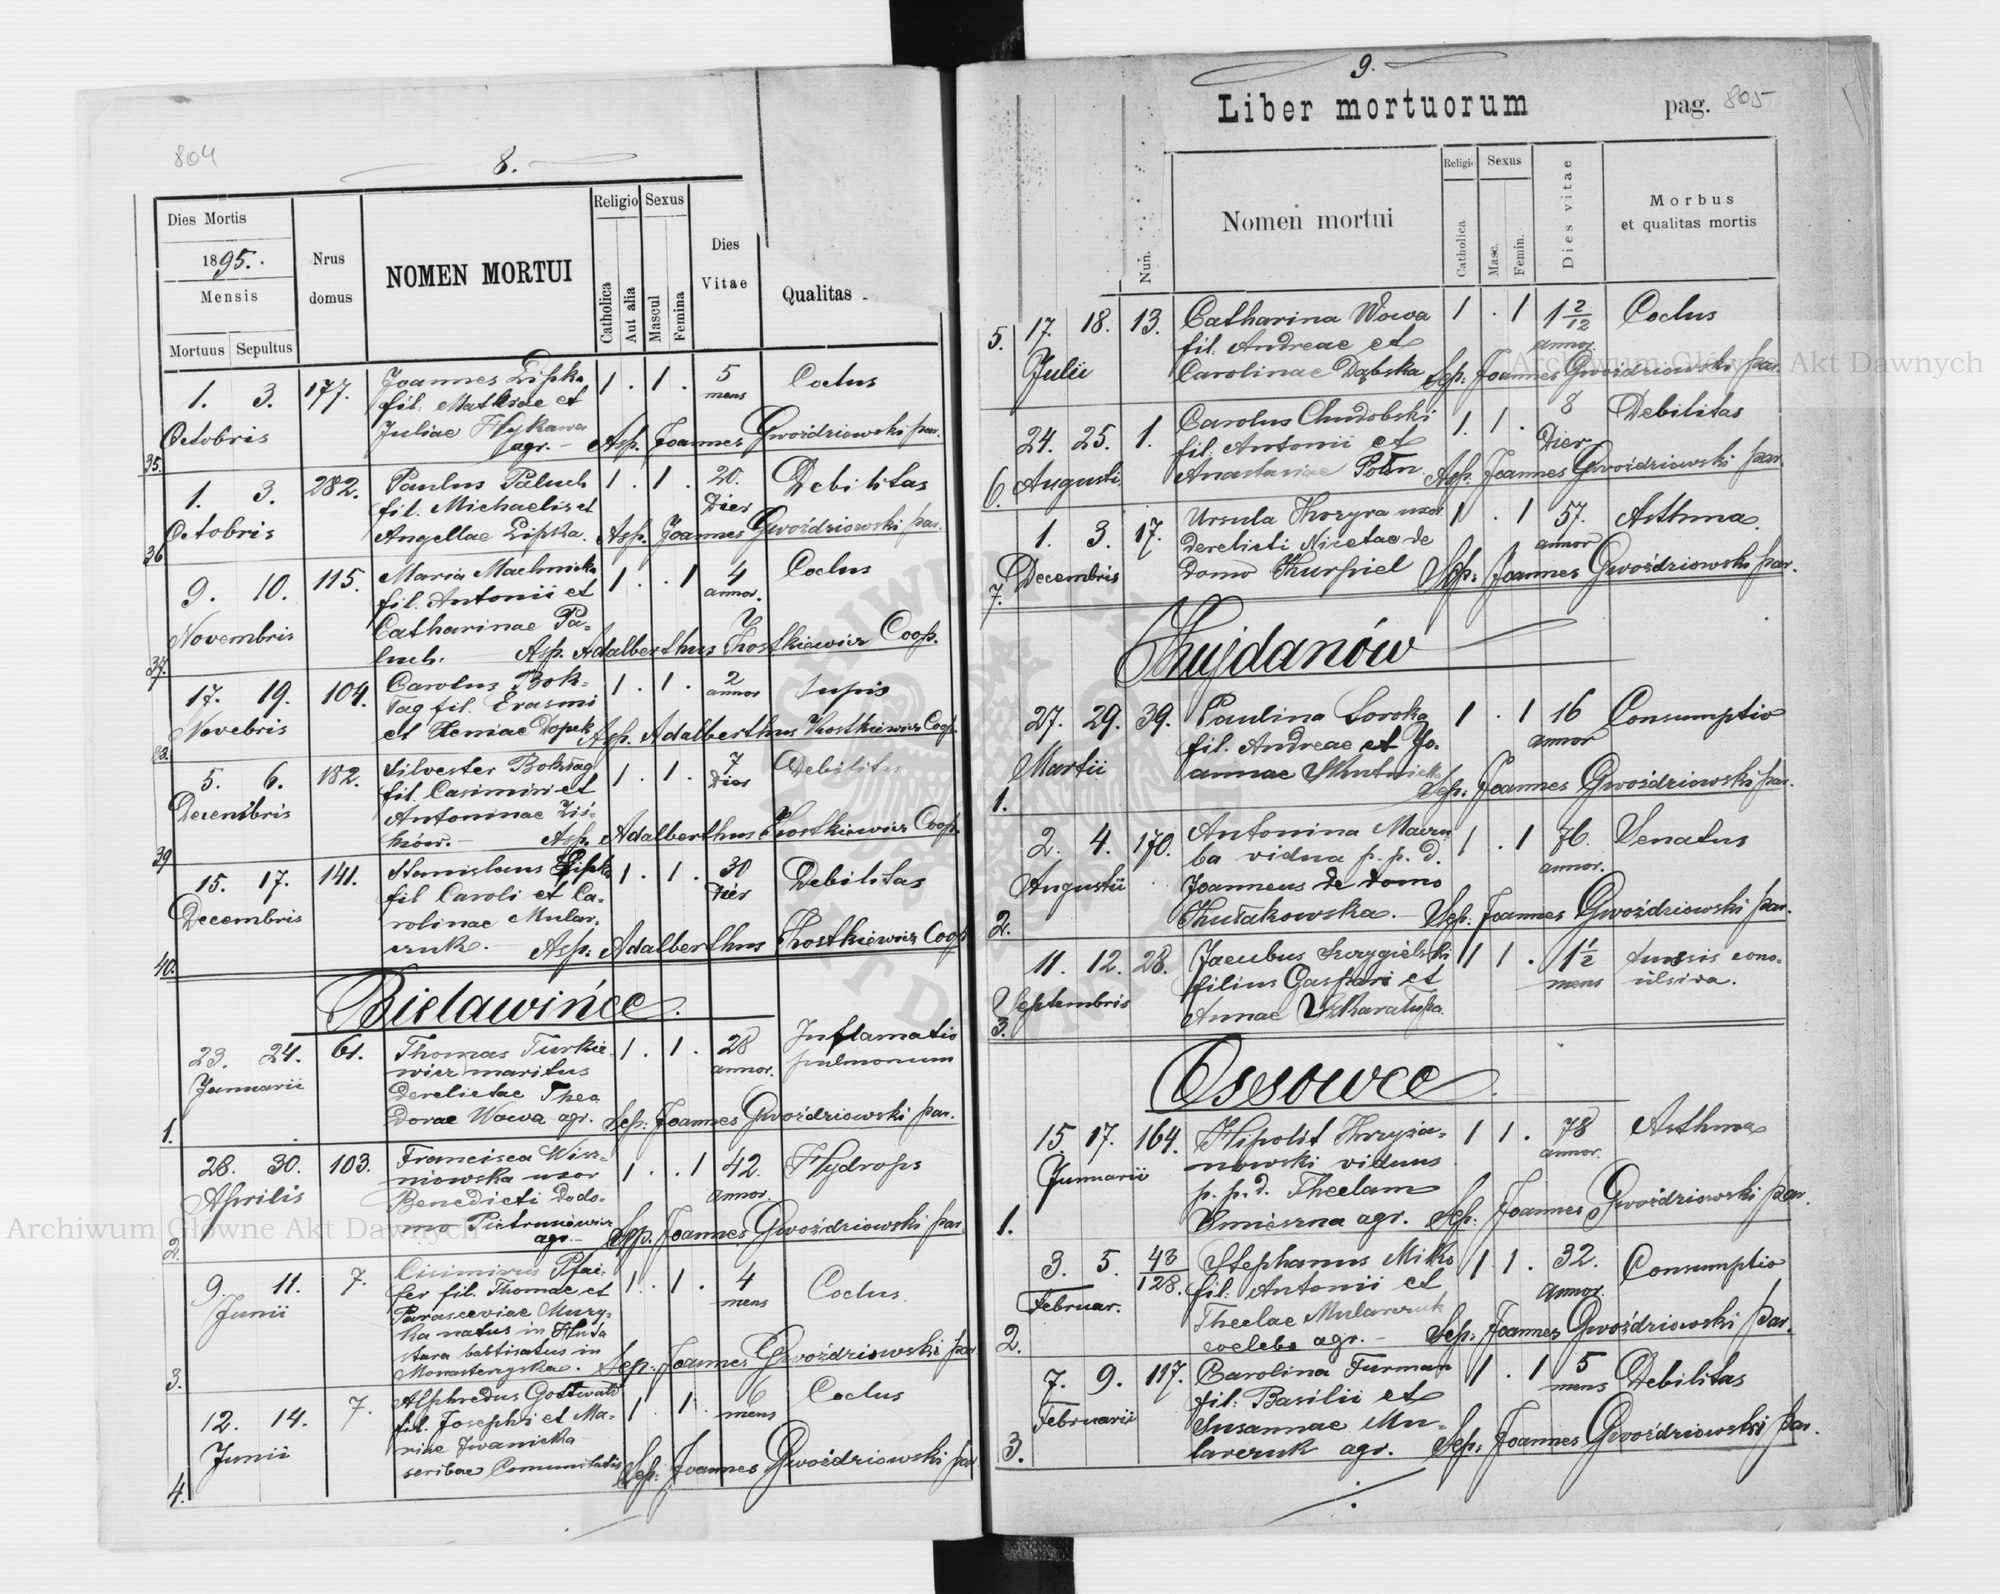 804
8.
Dies Mortis
1895.
Mensis
Mortuus Sepultus
Nrus
domus
NOMEN MORTUI
Religio
Catholica
Aut alia
Sexus
Mascul
Femina
Dies
Vitae
Qualitas
35.
1. 3. 177. Joannes Lipka 1 . 1 . 5 Coctus
fil. Mathiae et mens
Octobris Juliae Hykawa
agr. — Asp. Joannes Gwoździowski par.
36
1. 3. 282. Paulus Paluch 1 . 1 . 20. Debilitas
fil. Michaelis et Dier
Octobris Angellae Lipka. Asp. Joannes Gwoździowski par.
37.
9. 10. 115. Maria Machnicka 1 . . 1 4 Coctus
fil. Antonii et annor.
Novembris Catharinae Pa-
luch. Asp. Adalberthus Kostkiewicz Coop.
17. 19. 104. Carolus Bok- 1 . 1 . 2
Novebris tag fil. Erasmi annor
et Xeniae Dopek Asp. Adalberthus Kostkiewicz Coop.
39
5. 6. 182. Silvester Boktag 1 . 1 . 7 Debilitas
Decembris fil. Casimiri et Dier
Antoninae Liś-
ków. — Asp. Adalberthus Kostkiewicz Coop.
40.
15. 17. 141. Stanislaus Lipka 1 . 1 . 30 Debilitas
Decembris fil Caroli et Ca- Dier
rolinae Mular-
czuk. Asp. Adalberthus Kostkiewicz Coop
Bielawińce.
23. 24. 61. Thomas Turkie- 1 . 1 . 28 Inflamatio
Januarii wicz maritus annor. pulmonum
derelictae Theo
dorae Wowa agr. Sep. Joannes Gwoździowski par.
1.
28. 30. 103. Francisca Wisz- 1 . . 1 42. Hydrops
Aprilis niowska uxor annor.
Benedicti de do-
mo Pietrusiewicz
agr. — Sep. Joannes Gwoździowski par.
2.
9. 11. 7. Cisimirus Pfai- 1 . 1 . 4 Coctus.
Junii fer fil. Thomae et mens
Parasceviae Mury-
ka natus in Huta
stara babtisatus in
Monasteryska. Sep. Joannes Gwoździowski par
3.
12. 14. 7. Alphredus Gottwald 1 . 1 . 6 Coctus
Junii fil. Josephi et Ma- mens
riae Iwanicka
scribae Comunitatis Sep. Joannes Gwoździowski par
4.
9.
Liber mortuorum pag. 805
Nun.
Nomen mortui
Religi
Catholica
Sexus
Masc.
Femin.
Dies vitae
Morbus
et qualitas mortis
5. 17. 18. 13. Catharina Wowa 1 . 1 1 2/12 Coctus
Julii fil. Andreae et annor.
Carolinae Dąbska Sep. Joannes Gwoździowski par.
24. 25. 1. Carolus Chudobski 1 . 1 . 8 Debilitas
fil. Antonii et Dier
6. Augusti Anastasiae Asp. Joannes Gwoździowski par.
1. 3. 17. Ursula Kozyra uxor 1 . 1 57. Asthma.
derelicti Nicetae de annor
7. Decembris domo Kurpiel Sep. Joannes Gwoździowski par.
Kujdanów
27. 29. 39. Paulina Soroka 1 . 1 16 Consumptio
fil. Andreae et Jo- annor
Martii annae
1. Sep. Joannes Gwoździowski par.
2. 4. 170. Antonina 1 . 1 76. Senatus
ba vidua p. p. d. annor.
Augustii Joanneus de domo
2. Kułakowska. — Sep. Joannes Gwoździowski par.
11. 12. 28. Jacubus Skrzygielski 1 1 . 1½ tussis conv-
filius Gaspari et mens ulsiva.
Septembris Annae
3.
Ossowce
15. 17. 164. Hipolit Krzyża- 1 1 . 78 Asthma
Junuarii nowski viduus annor.
p. p. d. Theclam
1. Kmieszna agr. Sep. Joannes Gwoździowski par.
3. 5. 43/128. Stephanus Miko 1 1 . 32. Consumptio
Februar. fil. Antonii et annor.
Theclae Mularczuk
2. celebs agr. — Sep. Joannes Gwoździowski par.
7. 9. 117. Carolina Furman 1 . 1 5 Debilitas
Februarii fil. Basilii et mens
Susannae Mu-
3. larczuk agr. Sep. Joannes Gwoździowski par.
Archiwum Główne Akt Dawnych
Archiwum Główne Akt Dawnych